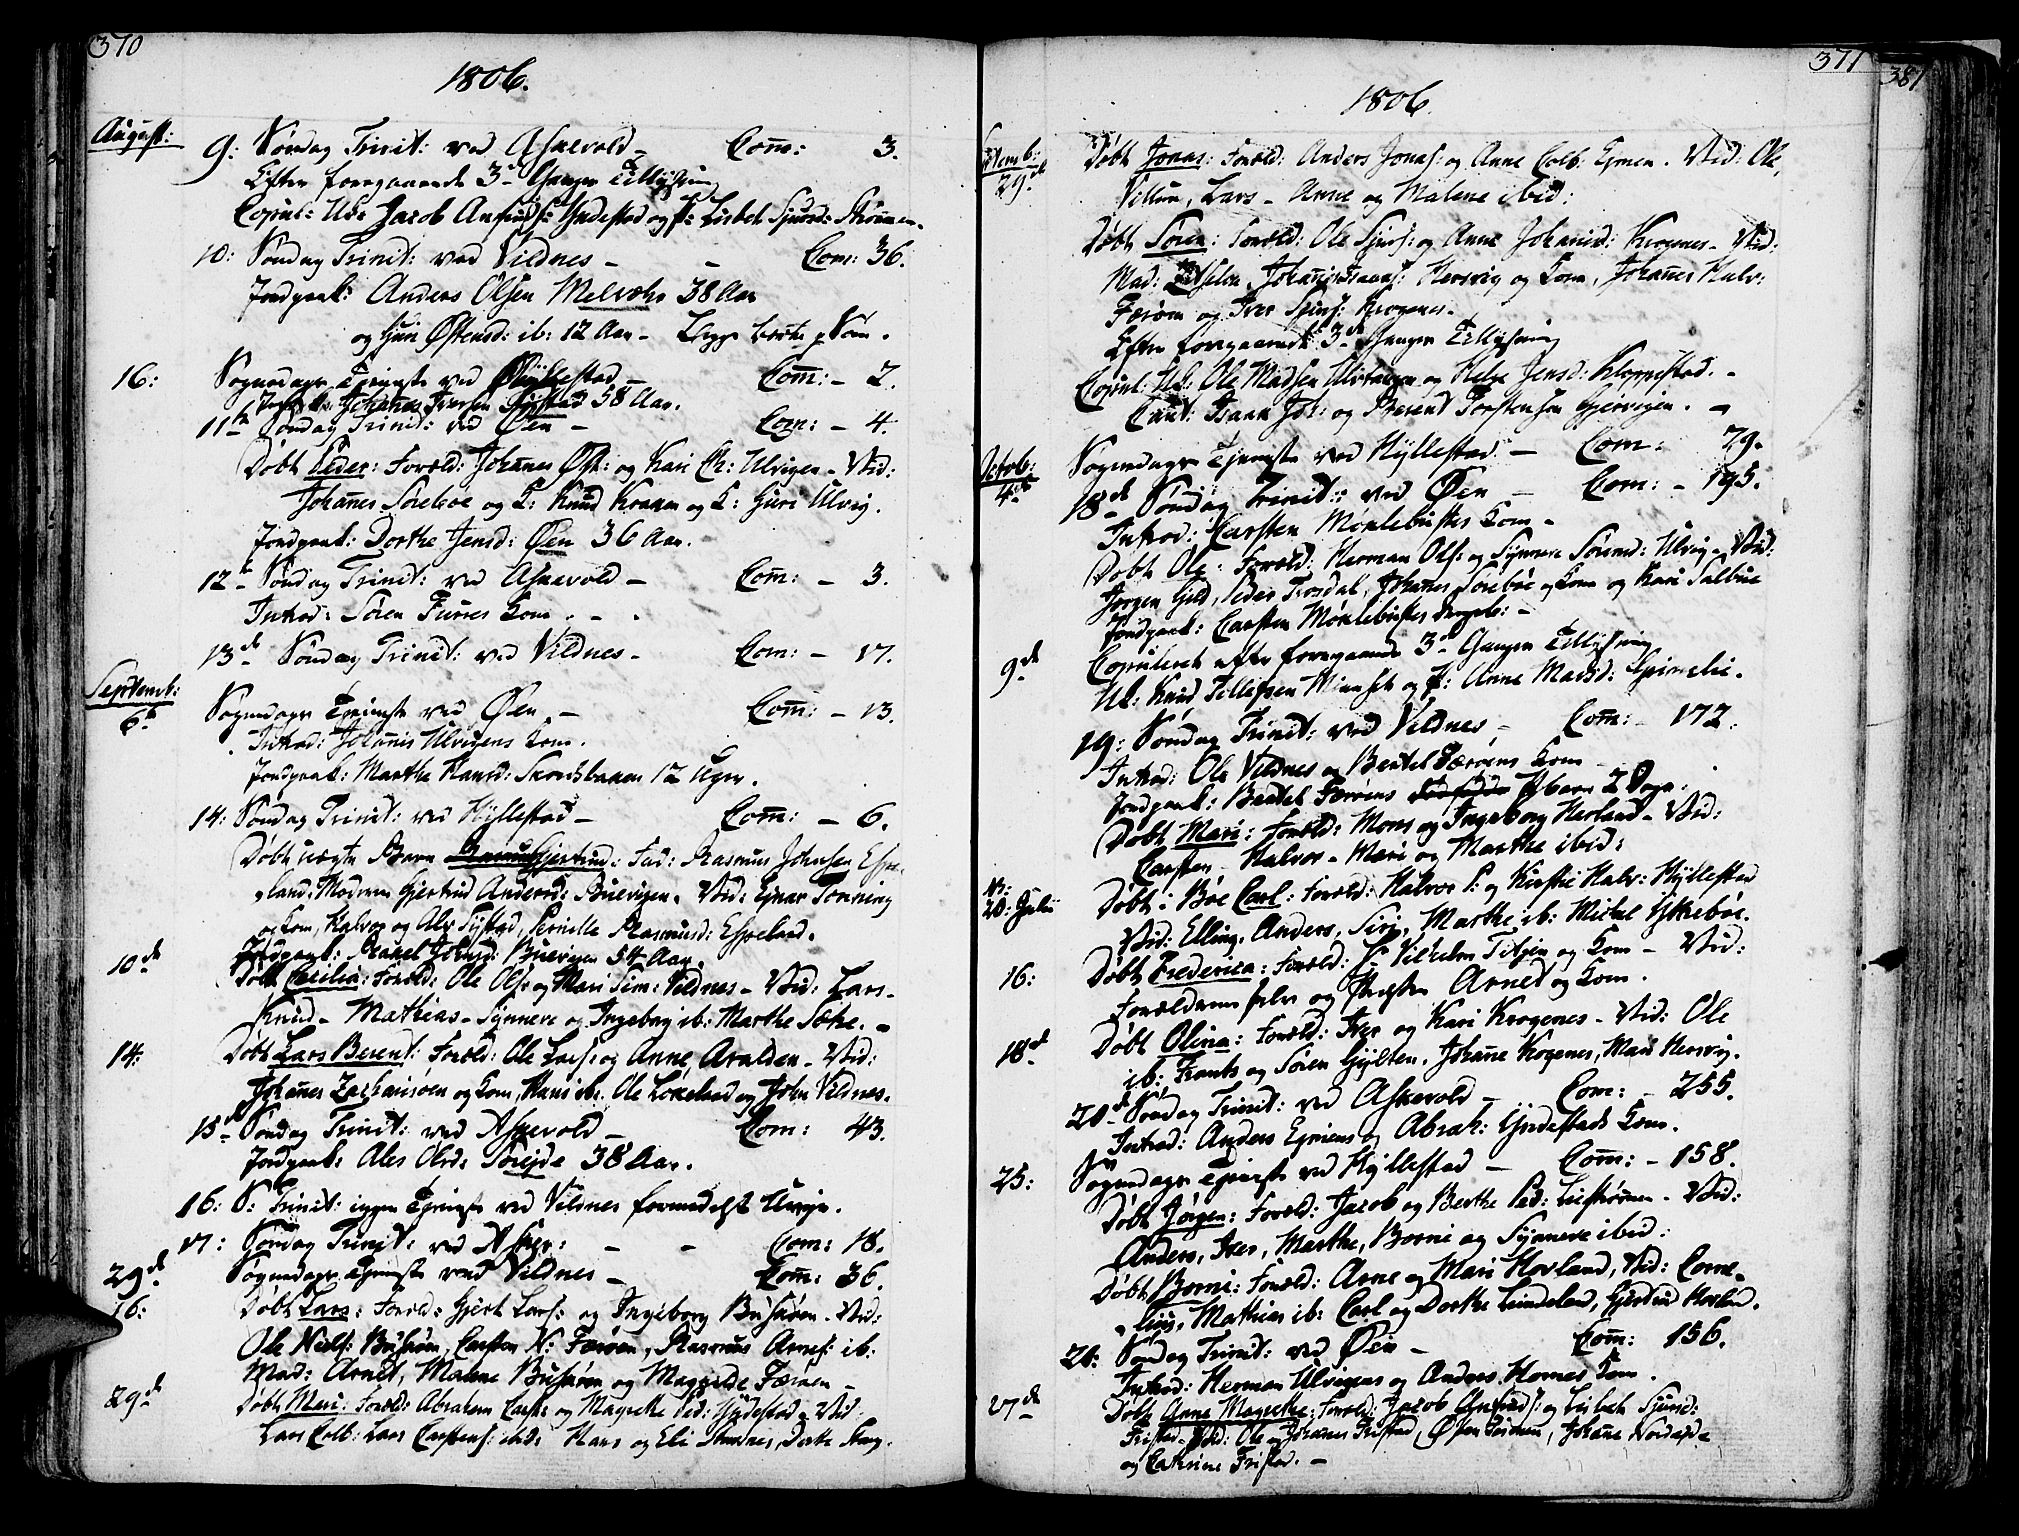 370
1806.
August:
9: Søndag Trinit: ved Askevold – Com̄: 3.
Efter foregaaende 3de Ganger Tillysning
Copul: Uk: Jacob Ansinds: Yndestad og P: Lisbet Sjurd: Strømmen.
10: Søndag Trinit: ved Vildnes – – Com: 36.
Jordpaak: Anders Olsen Melvær 38 Aar
og Guri Østensd: ib: 12 Aar –
16: Søgnedags Tjeniste ved Hyllestad – Com̄: – 2.
Jordpaak: Johannes Iversen Systad 58 Aar.
11te Søndag Trinit: ved Øen – Com: – 4.
Døbt Peder: Foræld: Johannes Øst: og Kari Ch: Ulvigen – Vid:
Johannes Sørebøe og K: Knud Kraam og K: Guri Ulvig.
Jordpaak: Dorthe Jensd: Øen 36 Aar.
12te Søndag Trinit: ved Askevold – Com̄: – 3.
Introd: Søren Furres Kone.
13de Søndag Trinit: ved Vildnes – Com: – 17.
Septemb:
6te Søgnedags Tjeniste ved Øen – Com̄: – 13.
Introd: Johannis Ulvigens Kone.
Jordpaak: Marthe Hansd: 12 Uger.
14: Søndag Trinit: ved Hyllestad – Com̄: – 6.
Døbt uægte Barn Gjertrud: Fad: Rasmus Johnsen Espe-
land, Moderen Gjertrud Andersd: Buevigen. Vid: Ejnar Tonning
og Kone, Halvor og Ole Systad, Pernille Rasmusd: Espeland.
Jordpaak: Rakel Johnsd: Buevigen 54 Aar.
10de Døbt Cecilia: Foræld: Ole Ols: og Mari Sim: Vildnes – Vid: Lars –
Knud – Mathias – Synneve og Ingeborg ib: Marthe Sæle. –
14: Døbt Lars Berent: Foræld: Ole Lars: og Anne Aralden – Vid:
Johannes Zachariasen og Kone, Hans ib: Ole Lokeland og John Vildnes.
15de Søndag Trinit: ved Askevold – Com: 43.
Jordpaak: Ales Olsd: 38 Aar.
16: S: Trinit: ingen Tjeniste ved Vildnes formedelst Uvejr.
17: Søndag Trinit: ved Askev: – – Com: 18.
29de Søgnedags Tjeniste ved Vildnes – Com̄: 36.
16: Døbt Lars: Foræld: Gjert Lars: og Ingeborg Busøen. Vid:
Ole Niels: Busøen, Carsten N: Færøen, Rasmus Arnes: ib:
Mad: Arnet, Malene Busøen og Magrethe Færøen –
29de Døbt Mari: Foræld: Abraham Carst: og Magrethe Ped: Yndestad – Vid:
Lars Colb: Lars Carstens: ibid: Hans og Eli Strømnes, Dorthe
371
387
1806.
Septemb:
29de Døbt Jonas: Foræld: Anders Jonas: og Anne Colb: Ejmen. Vid: Ole,
Villum, Lars – Anne og Malene ibid:
Døbt Søren: Foræld: Ole Sjurs: og Anne Johannisd: Krogenes – Vid:
Mad: Johannes Hersvig og Kone, Johannes Halv:
Færøen og Iver Sjurs: Krogenes.
Efter foregaaende 3de Ganger Tillysning
Copul: Uk: Ole Madsen og Helge Jensd: Kleppestad. –
Caut: Isaak Joh: og Berend Torstensen Gjervigen. –
Octob:
4de Søgnedags Tjeniste ved Hyllestad – Com: 29.
18de Søndag Trinit: ved Øen – Com: – 195.
Introd: Carsten Mørlebustes Kone –
Døbt Ole: Foræld: Herman Ols: og Synneve Sørensd: Ulvig – Vid:
Jørgen Guld, Peder Trosdal, Johannes Sørebøe og Kone og Kari Salbue
Jordpaak: Carsten Mørlebustes –
9de Copuleret efter foregaaende 3de Ganger Tillysning
Uk: Knud Tellefsen og P: Anne Madsd: Grimelie.
19: Søndag Trinit: ved Vildnes – Com̄: – 172.
Introd: Ole Vildnes og Bertel Færøens Kone –
Jordpaak: Bertel Færøens Barn 2 Dage.
Døbt Mari: Foræld: Mons og Ingeborg Herland – Vid:
Carsten – Halvor – Mari og Marthe ibid:
20: Julii Døbt i Bøe Carl: Foræld: Halvor P: og Kirstie Halv: Hyllestad
Vid: Elling, Anders, Siri, Marthe ib: Michel Yskebøe.
16: Døbt Frederica: Foræld: Hr Vilhelm Titjen og Kone – Vid:
Forældrene selv og Arnet og Kone.
18de Døbt Olina: Foræld: Iver og Kari Krogenes – Vid: Ole
ib: Frants og Søren Gjylten, Johanne Krogenes, Mari Hersvig.
20de Søndag Trinit: ved Askevold – Com: – 255.
Introd: Anders Ejmens og Abrah: Yndestads Kone.
25: Søgnedags Tjeniste ved Hyllestad – Com̄: – 158.
Døbt Jørgen: Foræld: Jacob og Berthe Ped: Leestrømmen – Vid:
Anders, Iver, Marthe, Borni og Synneve ibid:
Døbt Borni: Foræld: Arne og Mari Hovland, Vid: Corne-
lius, Mathias ib: Carl og Dorthe Leindeland, Gjertrud Hovland.
26: Søndag Trinit: ved Øen – Com̄: 156.
Introd: Herman Ulvigens og Anders Hornes Kone.
27de Døbt Anne Magrethe: Foræld: Jacob Ansinds: og Lisbet Sjurd:
Tristad – Vid: Ole og Johannes Tristad, Johanne Nordahl
og Cathrine Tristad. –